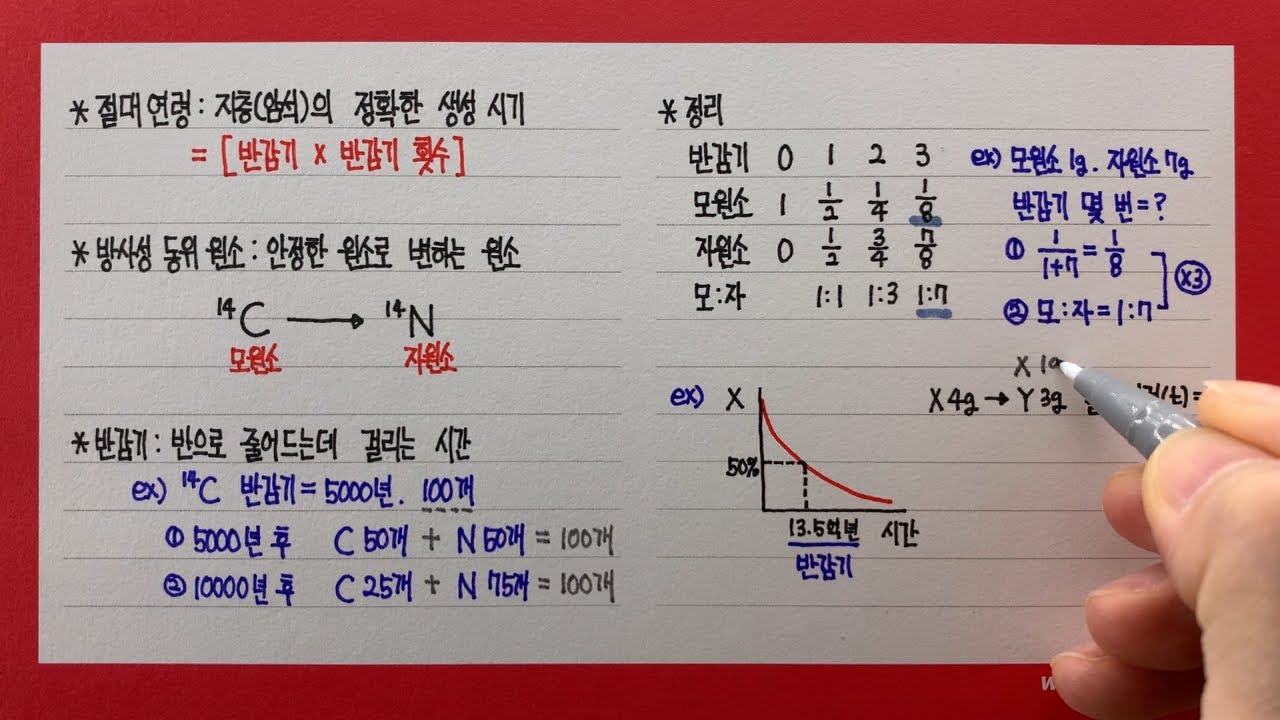 * 절대 연령 : 지층(암석)의 정확한 생성 시기
= [ 반감기 X 반감기 횟수 ]
* 방사성 동위 원소 : 안정한 원소로 변하는 원소
¹⁴C → ¹⁴N
모원소 자원소
* 반감기 : 반으로 줄어드는데 걸리는 시간
ex) ¹⁴C 반감기 = 5000년. 100개
① 5000년 후 C 50개 + N 50개 = 100개
② 10000년 후 C 25개 + N 75개 = 100개
* 정리
반감기 0 1 2 3
모원소 1 1/2 1/4 1/8
자원소 0 1/2 3/4 7/8
모:자 1:1 1:3 1:7
ex) 모원소 1g. 자원소 7g
반감기 몇 번 = ?
① 1/1+7 = 1/8
② 모:자 = 1:7
X3
ex) X
50%
13.5억년 시간
반감기
X 1g
X 4g → Y 3g (t) =